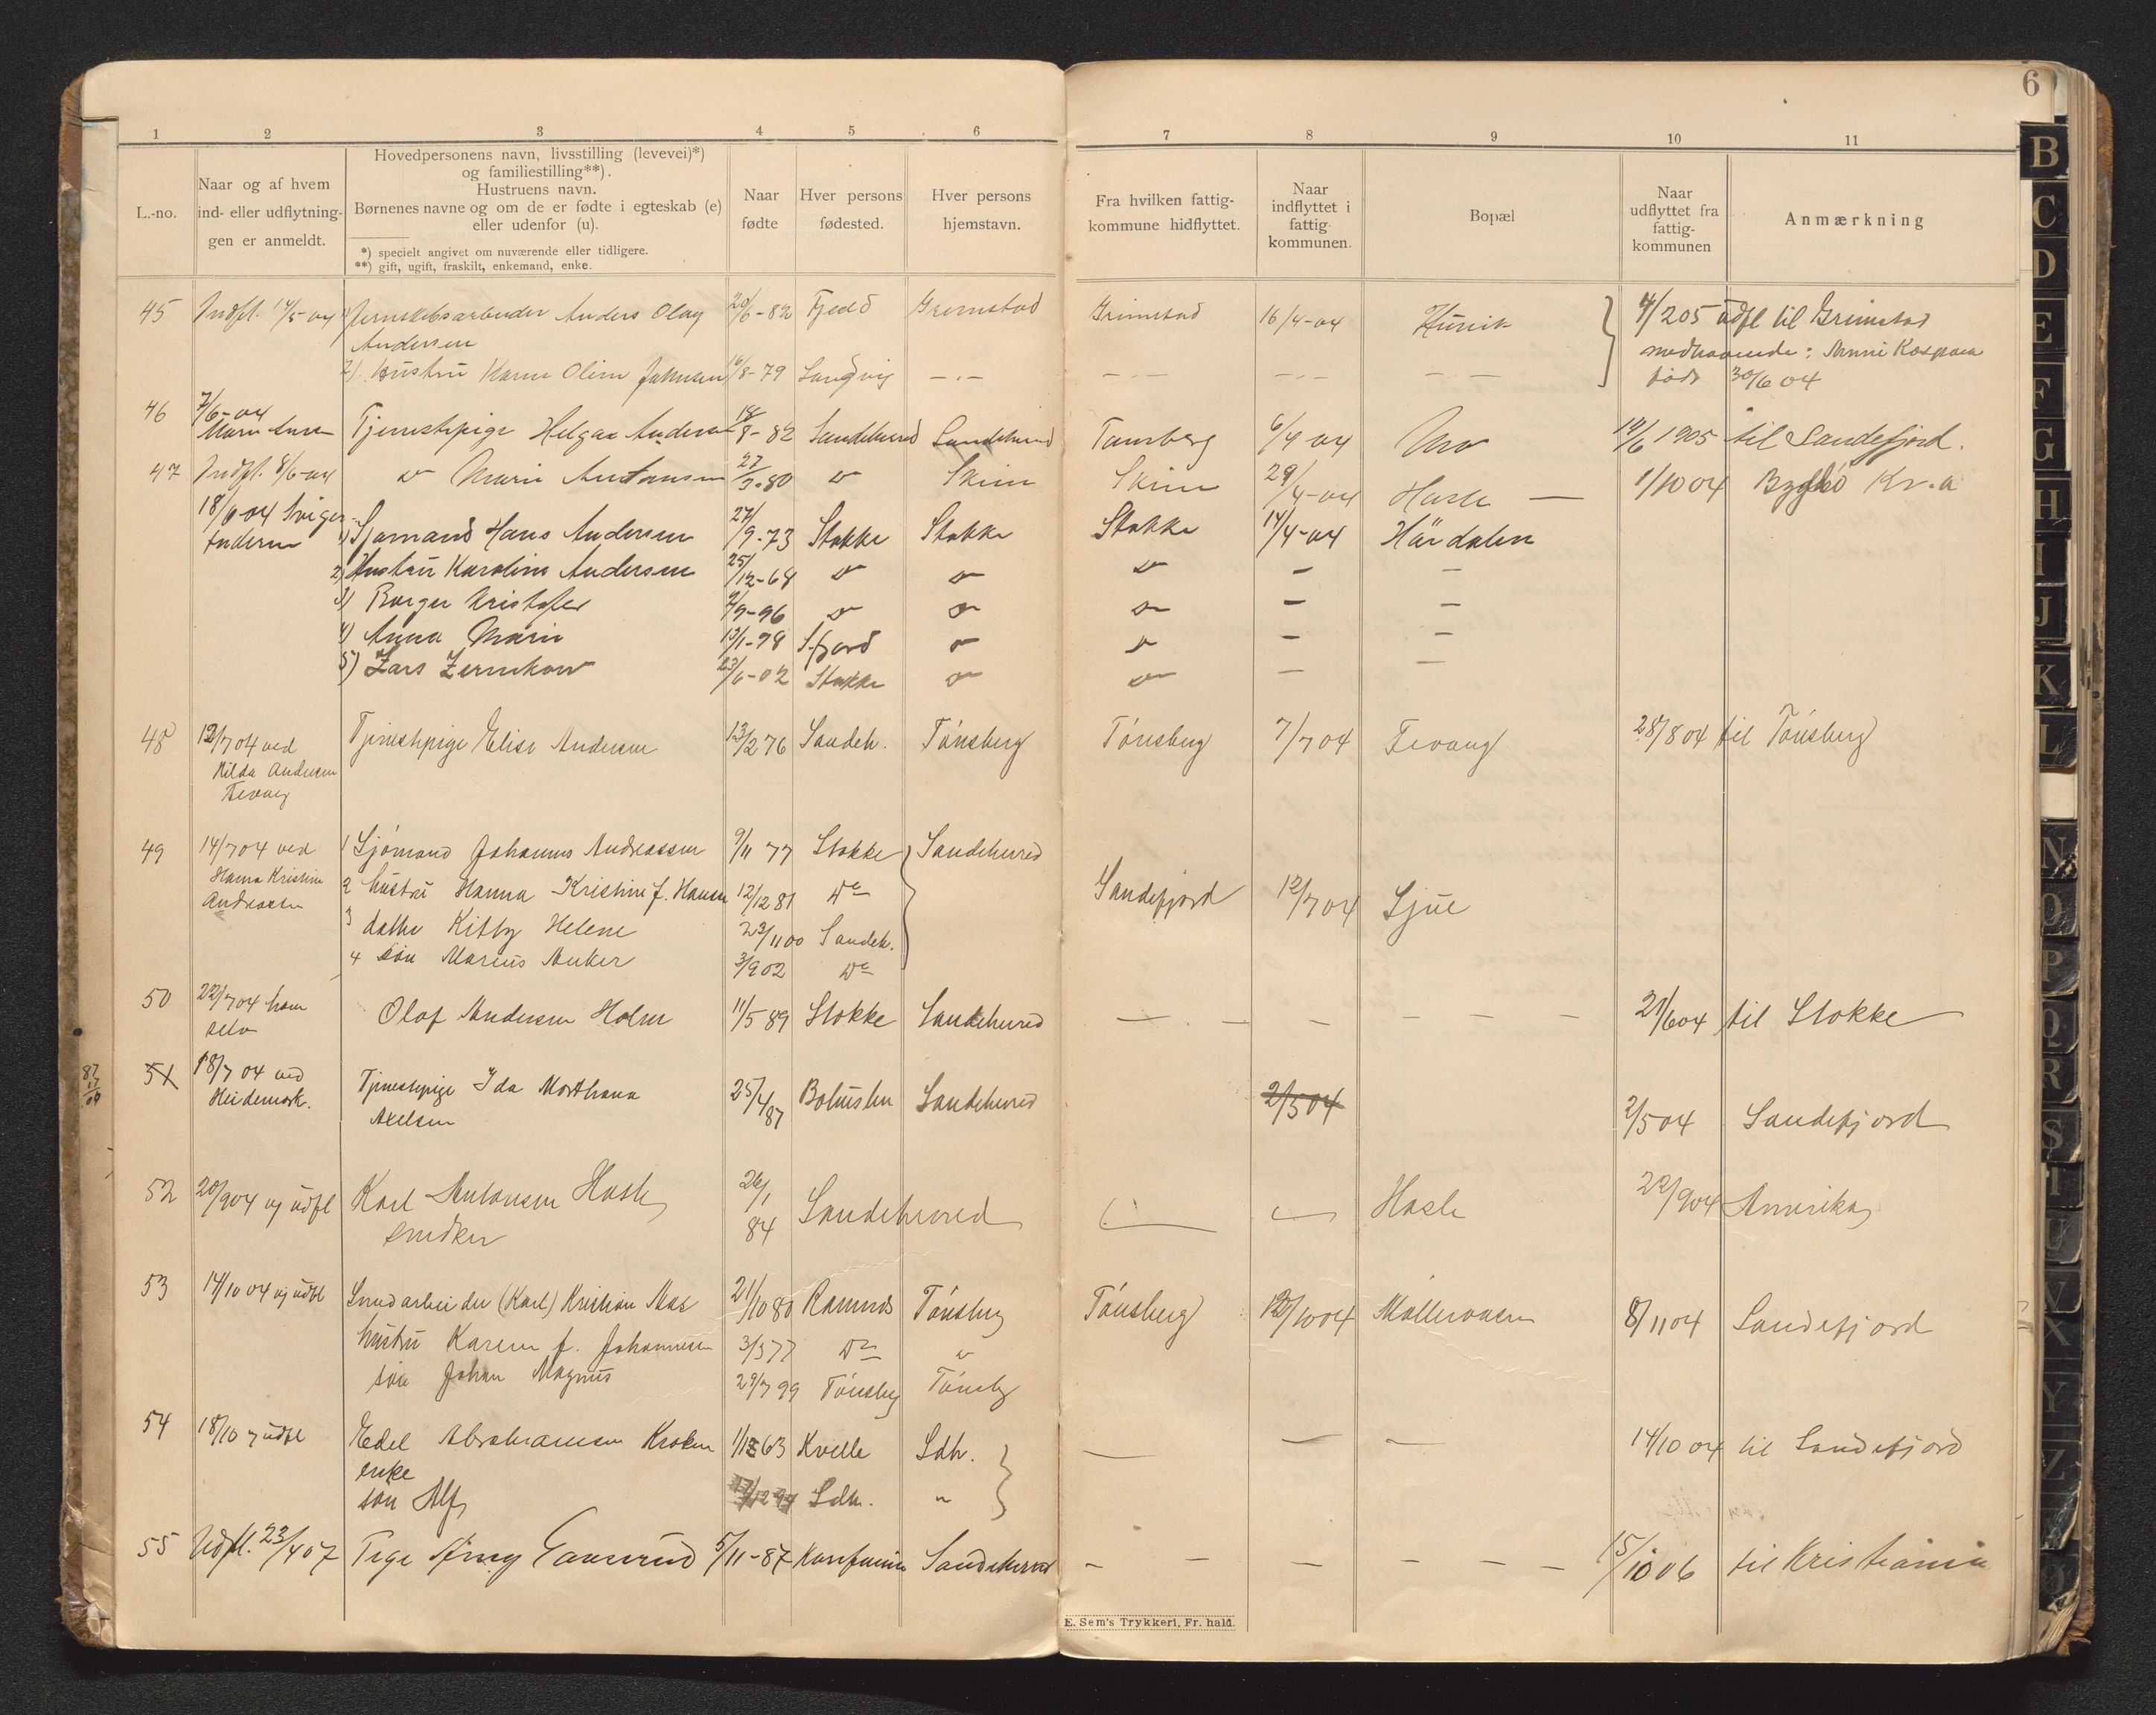 6
1 2 3 4 5 6 7 8 9 10 11
L.-no.
Naar og af hvem
ind- eller udflytnin-
gen er anmeldt.
Hovedpersonens navn, livsstilling (levevei)*)
og familiestilling**).
Hustruens navn.
Børnenes navne og om de er fødte i egteskab (e)
eller udenfor (u).
*) specielt angivet om nuværende eller tidligere.
**) gift, ugift, fraskilt, enkemand, enke.
Naar
fødte
Hver persons
fødested.
Hver persons
hjemstavn.
Fra hvilken fattig-
kommune hidflyttet.
Naar
indflyttet i
fattig-
kommunen.
Bopæl
Naar
udflyttet fra
fattig-
kommunen
Anmærkning
45 Indfl. 14/5-04 Anders Olaf 20/6-82 Fjeld Grimstad Grimstad 16/4-04 4/205 udfl til Grimstad
Andersen
2) Hustru Karen Oline Johnsen 16/8-79 Sandvig -.- -.- -.- - -
født 30/6 04
46 7/6-04 Tjenestpige Helga Andersen 18/8-82 Sandeherred Sandeherred Tønsberg 6/4 04 Mo 10/6 1905 til Sandefjord.
47 Indfl. 8/6-04 " Marie Antonsen 27/3-80 " Skien Skien 29/4-04 Hasle — 1/10 04 Bygdø Kr.a
18/6-04
Andersen 1) Sjømand Hans Andersen 27/9-73 Stokke Stokke Stokke 14/4-04 Haukdalen
2) Hustru Karoline Andersen 25/12-64 " " " - -
3) Borger Kristofer 4/9-96 " " " - -
4) Anna Marie 13/1-98 S.fjord " " - -
5) Lars 23/6-02 Stokke " " - -
48 12/7 04 ved Tjenestpige Elise Andersen 13/2 76 Sandeh. Tønsberg Tønsberg 7/7 04 Fevang 28/8 04 til Tønsberg
Hilda Andersen
Fevang
49 14/7 04 ved 1 Sjömand Johannes Andreassen 9/11 77 Stokke Sandeherred
Hanna Kristine 2 hustru Hanna Kristine f. Hansen 12/12 81 Do Sandefjord 12/7 04 Sjue
Andreassen 3 datter Kitty Helene 23/11 00 Sandeh.
4 søn Marius Anker 3/9 02 Do
50 22/7 04 ham Olaf Andersen Holm 11/5 89 Stokke Sandeherred — — — — — — 21/6 04 til Stokke
selv
87
17
04
51 18/7 04 ved Tjenestpige Ida Marthana 25/4 87 Sandeherred 2/5 04 2/5 04 Sandefjord
Heidemark. Axelsen
52 20/9 04 ug udfl Karl Antonsen Hasle 26/1 84 Sandeherred — — Hasle 22/9 04 Amerika
snedker
53 14/10 04 ug udfl (Karl) Kristian 21/10 80 Ramnes Tønsberg Tønsberg 12/10 04 8/11 04 Sandefjord
hustru Karen f. Johannesen 3/3 77 Do "
søn Johan Magnus 29/7 99 Tønsberg Tønsbg
54 18/10 ug udfl Edel Abrahamsen Kroken 1/12 63 Kvelle Sdh. — — — 14/10 04 til Sandefjord
enke
søn Alf Sdh. "
55 Udfl. 23/4 07 Pige 5/11-87 Sandeherred - - - - - - 15/10 06 til Kristiania
E. Sem's Trykkeri, Fr. hald.
B
C
D
E
F
G
H
I
J
K
L
N
O
P
Q
R
S
T
U
V
X
Y
Z
Ø